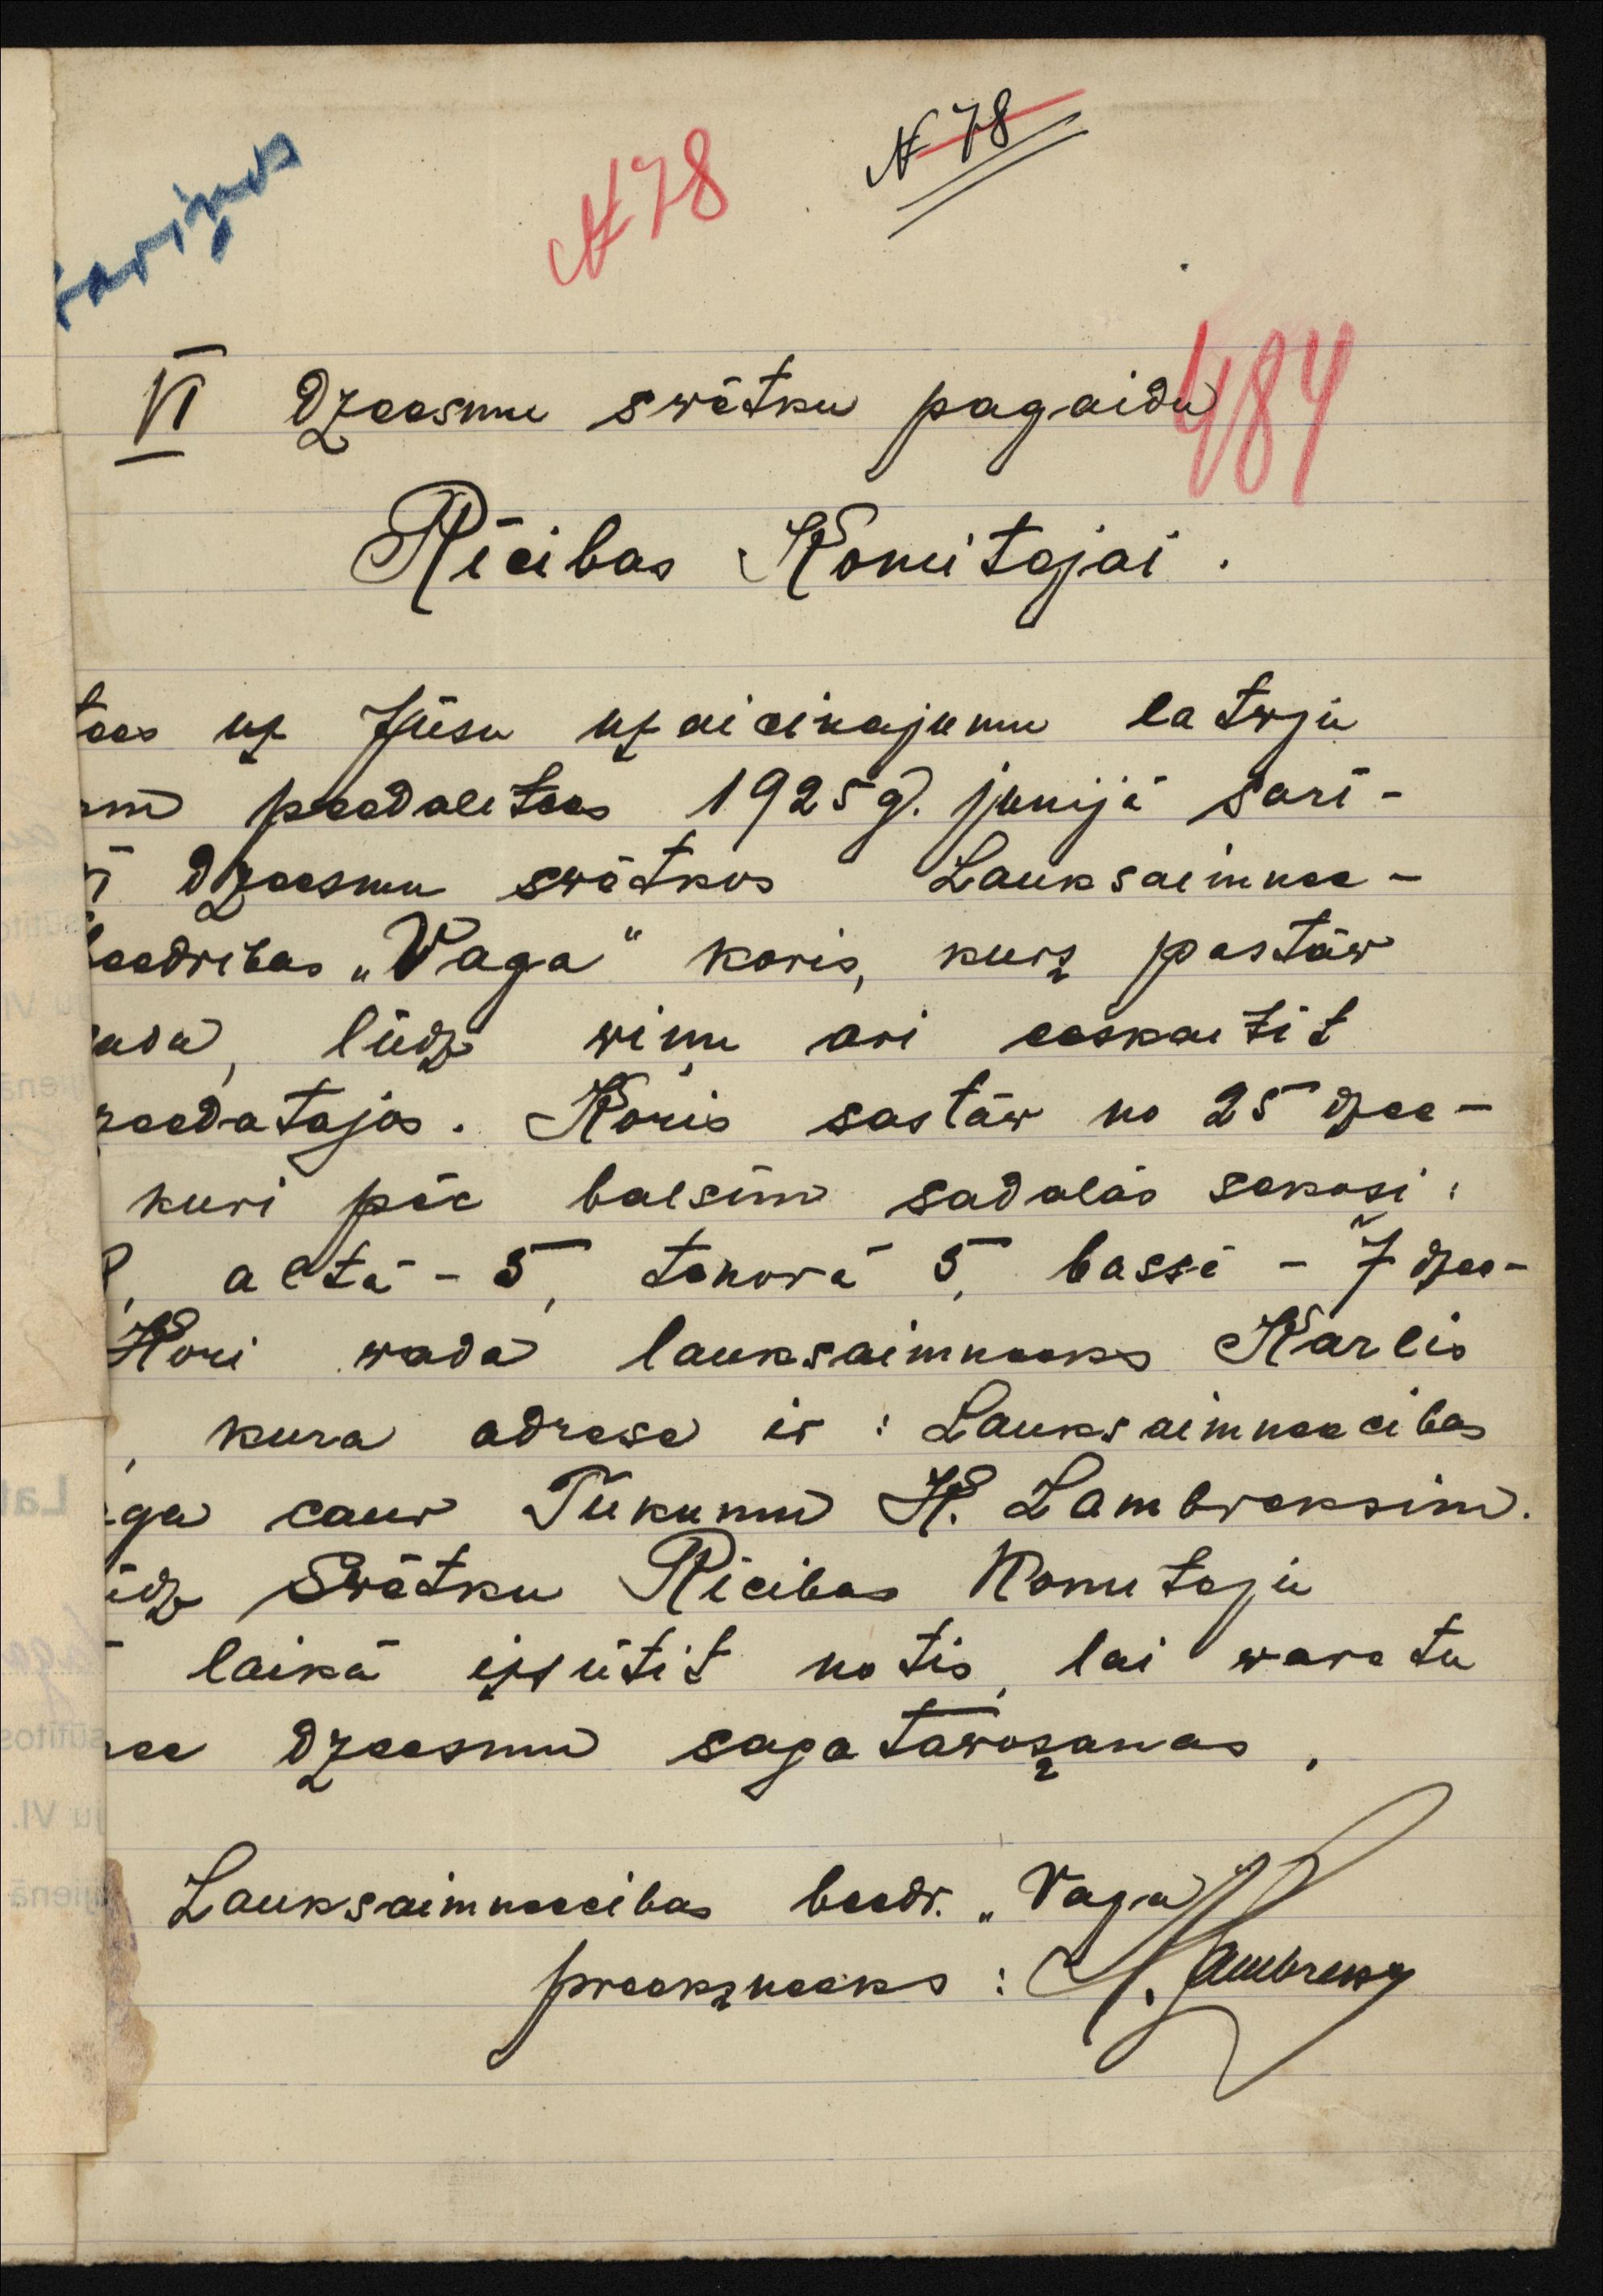 N 78
N 78
484
VI Dzeesmu swētku pagaidu
Rīcibas Komitejai.
tees uz Jūsu uzaicinajumu latwju
em peedaletees 1925 g. junijā sarī-
dzeesmu swētkos Lauksaimnee-
beedribas „Vaga“ koris, kurz pastāw
lūdz wiņu ari eeskaitit
Koris sastāw no 25 dzee-
kuri pēc balsim sadalās sekosi:
altā - 5, tenorā 5, bassā - 7 dzee-
Kori wada lauksaimneeks Karlis
, kura adrese ir: Lauksaimneecibas
ga caur Tukumu K. Lambreksim.
ūdz Swētku Rīcibas Komiteju
laikā izsūtit notis, lai waretu
dzeesmu sagatawozanas.
Lauksaimneecibas beedr. „Vaga“
preekzneeks: K. Lambreks